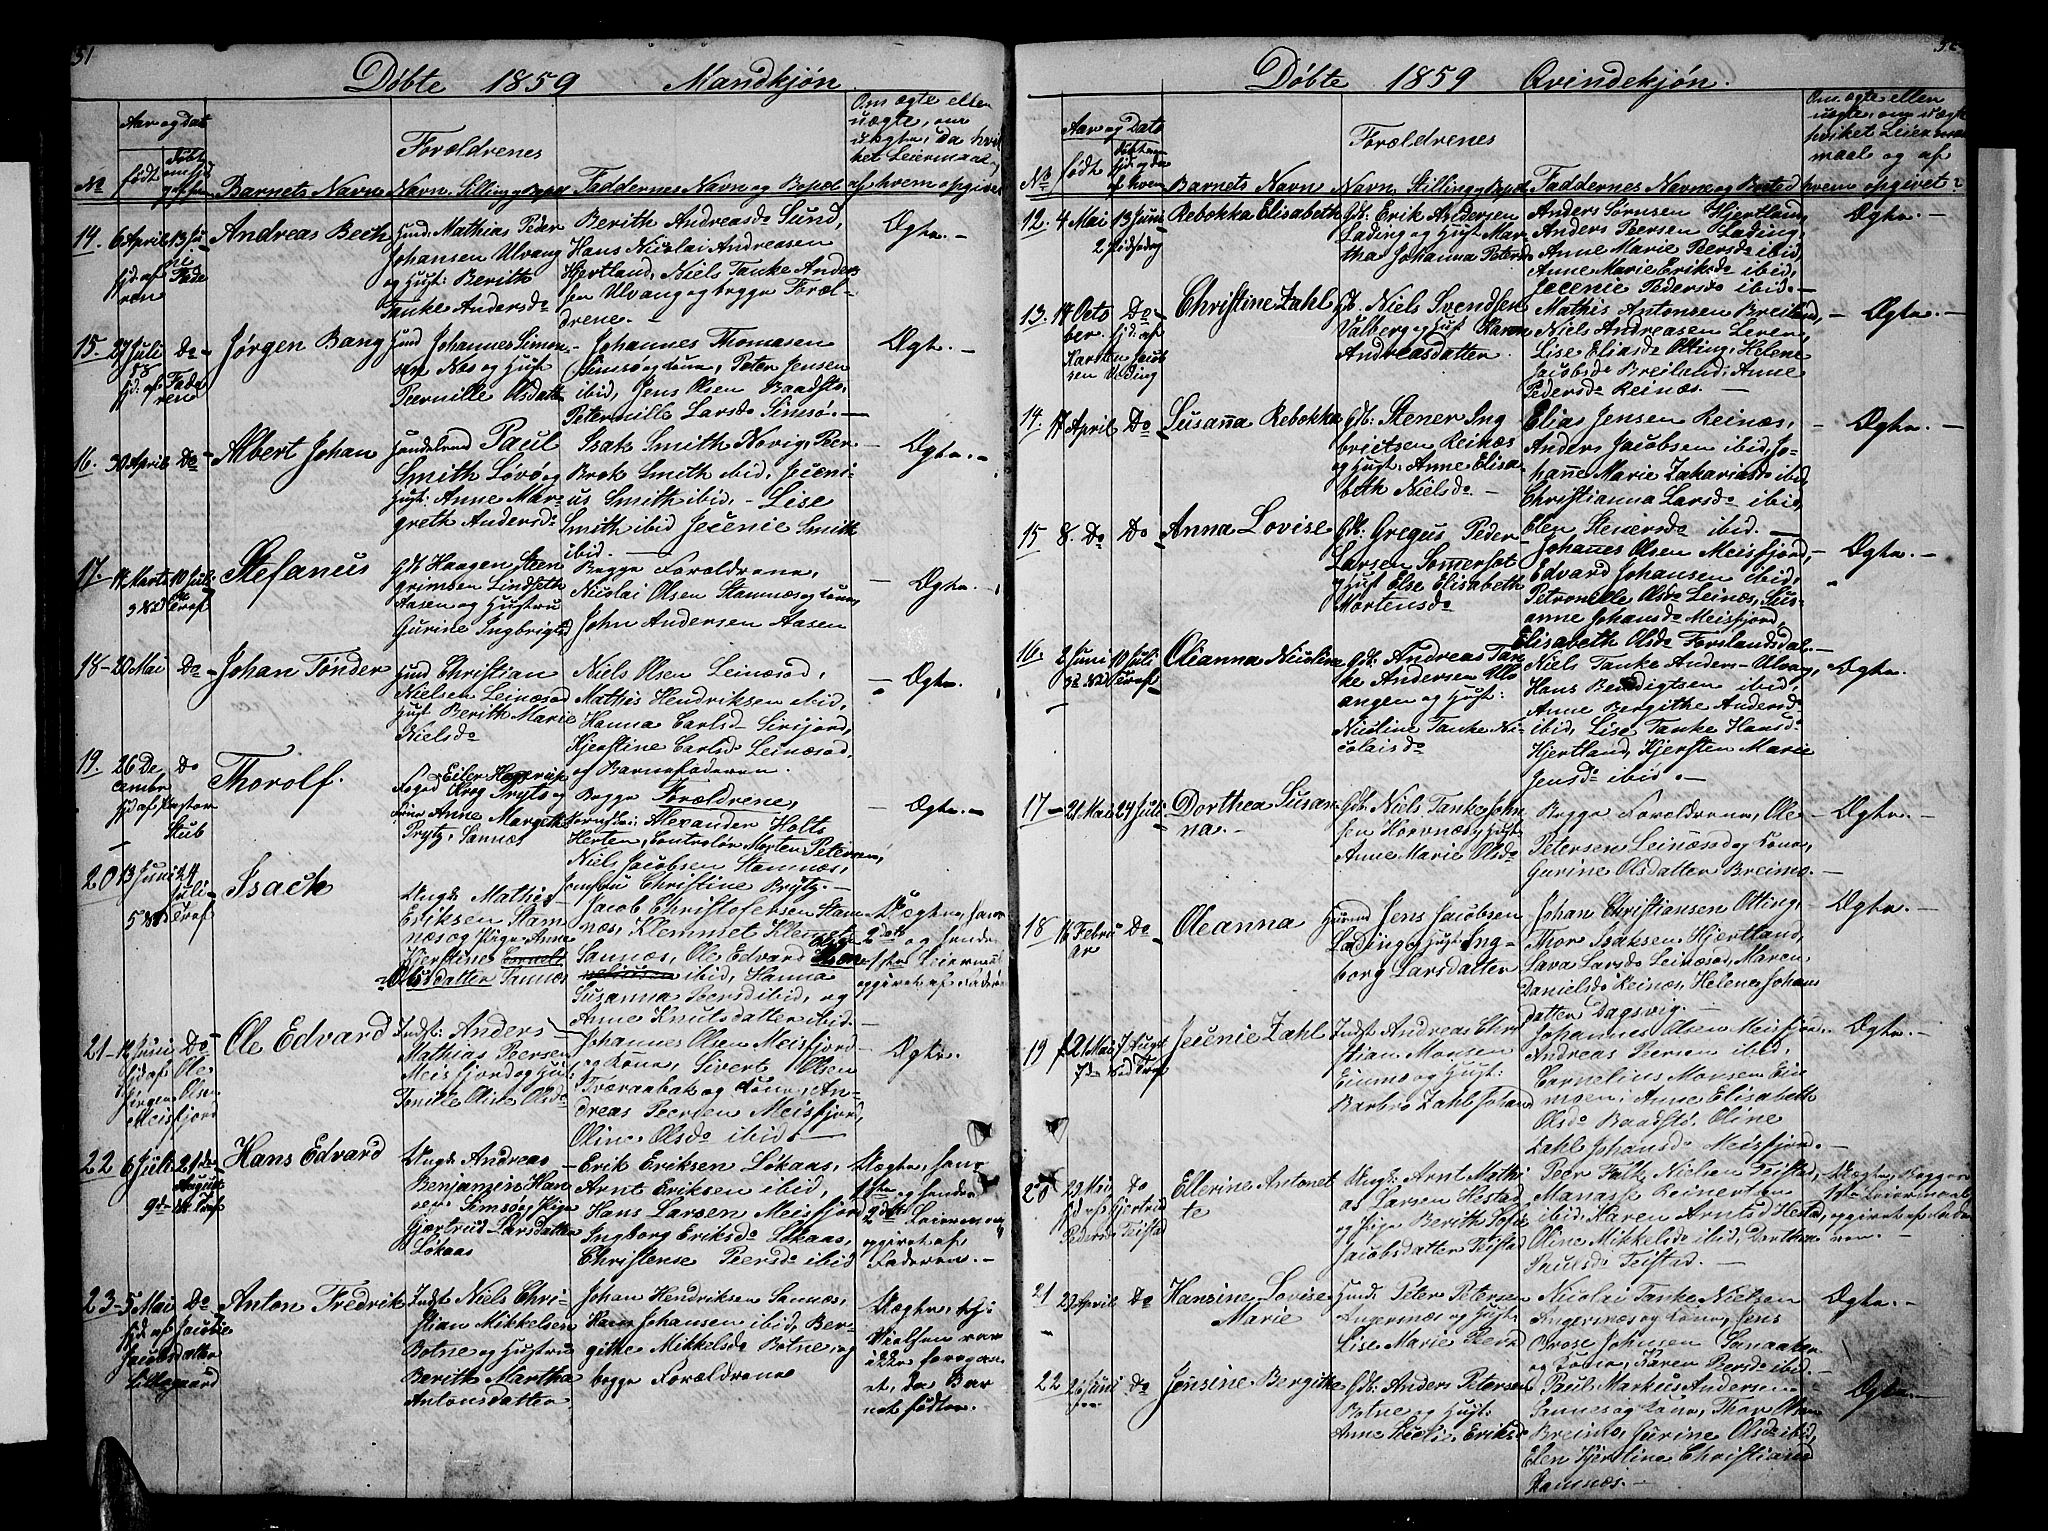 51
Døbte 1859 Mandkjøn
Aar og Dat
No
født
Barnets Navn
Forældrenes
Navn, Stilling og Bopæl
Faddernes Navn og Bopæl
Om ægte eller
uægte, om
uægte, da hvil
ket Leiermaal,
af hvem opgivet
14. 6 April 13 Juni
hjd. af Fade
ren
Andreas Bech
Huusmd: Mathias Peder
Johansen Ulvang
og Hust: Berith
Tanke Andersd:
Berith Andreasd: Sund,
Hans Nicolai Andreasen
Hjertland, Niels Tanke Anders
sen Ulvang og begge Foræl-
drene. –
Ægte. –
15. 27 Juli Do
58
hjd. af Fade
rene
Jørgen Bang
Johannes Simon-
sen Næs og Hust
Pernille Olsdatt
Johannes Thomasen
Simsø og Kone, Peter Jensen
ibid, Jens Olsen Baadstø,
Peternille Larsd: Simsø. –
Ægte. –
16. 30 April Do
Albert Johan
Handelsmd Paul
Smith Løvø og
Hust: Anne Mar-
greth Andersd:
Isak Smith Novig, Peer
Brok Smith ibid, Jeceni-
us Smith ibid, – Lise
Smith ibid Jecenie Smith
ibid. –
Ægte. –
17. 14 Marts 10 Juli
Stefanus
Gb. Haagen Steen
grimsen Lindseth
Aasen og Hustru
Gurine Ingbrigtsd
Begge Forældrene,
Nicolai Olsen Stamnæs og Kone
John Andersen Aasen
Ægte. –
18 – 20 Mai Do
Johan Tønder
Huusmd Christian
Nielsen Leinæsød
Hust Berith Marie
Nielsd:
Niels Olsen Leinæsød,
Mathis Hendriksen ibid,
Hanna Carlsd: Sirifjord,
Kjerstine Carlsd: Leinæsød,
og Barnefaderen.
Ægte.
19. 26 De Do
cembr
hjd af Pastor
Stub
Thorolf.
Foged Eiler Hagerup
Krog Prytz og
Frue Anne Margrethe
Prytz, Sannæs
Begge Forældrene,
Alexander Holts
Herten, Controlør Morten Petersen,
Niels Jacobsen Stamnæs,
Jomfru Christine Prytz. –
Ægte. –
20 13 Juni 24
Juli
Isach
Ungk Mathis
Eriksen Stam
næs og Pige Anne
Kjerstine Corneli
Olsdatter Sannæs
Jacob Christofersen Stam
næs, Klemmet Klemet
Sannæs, Ole Edvard
ibid, Hanna
Susanna Peersd ibid, og
Anne Knutsdatter ibid. –
Uægte, hans
2det og hendes
1ste Leiermaal
opgivet af Faderen
21 – 12 Juni Do
hjd af Ole
Jørgen Olsen
Meisfjord
Ole Edvard
Indst: Anders
Mathias Peersen
Meisfjord og Hust:
Tonille Oline Olsd:
Johannes Olsen Meisfjord
og Kone, Sivert Olsen
Tværaabak og Kone, An-
dreas Peersen Meisfjord,
Oline Olsd: ibid. –
Ægte.
22 6 Juli 21de
August
Hans Edvard
Ungk Andreas
Benjamin Han
sen Simsø og Pige
Gjertrud Larsdatter
Løkaas
Erik Eriksen Løkaas,
Arnt Eriksen ibid,
Hans Larsen Meisfjord
Ingborg Eriksd: Løkaas,
Christense Peersd: ibid
Uægte, hans
1ste og hendes
2det Leiermaal
opgivet af
Faderen. –
23 – 5 Mai Do
hjd. af Jacobie
Jacobsdatter
Lillegaard
Anton Fredrik
Indst Niels Chri-
stian Mikkelsen
Botne og Hustru
Berith Martha
Antonsdatter
Johan Hendriksen Sannæs,
Hans Johansen ibid, Ber-
githe Mikkelsd: Botne og
begge Forældrene
Uægte, thi
Vielsen var
ikke foregaa-
et, da Bar
net fødtes.
Døbte 1859 Qvindekjøn.
Aar og Dato
No
født
Barnets Navn
Forældrenes
Navn, Stilling og Bopæl
Faddernes Navne og Bosted
Om ægte eller
uægte, om uægte
hvilket Leier-
maal og af
hvem opgivet?
12. 4 Mai 13 Juni
2 Pidsedag
Rebekka Elisabeth
Gb. Erik Andersen
Lading og Hust Mar-
tha Johanna Petersd
Anders Sørnsen Hjertland,
Anders Peersen Lading,
Anne Marie Peersd: ibid,
Anne Marie Eriksd: ibid,
Jecenie Pedersd: ibid. –
Ægte. –
13. 14 Octo Do
ber. hjd. af
Karsten Jacob
sen Vading
Christine Zahl
Gb. Niels Svendsen
Valberg og Hust Karen
Andreasdatter.
Mathis Antonsen Breiland,
Niels Andreasen Leren,
Lise Eliasd: Otting, Helene
Jacobsd: Breiland, Anne
Pedersd: Reinæs. –
Ægte. –
14. 17 April Do
Susanna Rebekka
Gb: Stener Ing
britsen Reinæs
og Hust. Anne Elisa-
beth Nielsd: –
Elias Jensen Reinæs,
Anders Jacobsen ibid, Jo-
hanne Marie Zakariasd: ibid
Christianna Larsd: ibid,
Elen Stenersd: ibid. –
Ægte. –
15 8. Do Do
Anna Lovise
Gb: Gregus Peder
Larsen Sommerset
og Hust Else Elisabeth
Mortensd:
Johanes Olsen Meisfjord,
Edvard Johansen ibid,
Petronelle Olsd: Leinæs, Sus-
anne Johansd: Meisfjord,
Elisabeth Olsd: Forslandsdal. –
Ægte. –
16. 2 Juni 10 Juli
Oleanna Nicoline
Gb. Andreas Tan
ke Andersen Ulv
angen og Hust:
Nicoline Tanke Ni-
colaisd:
Niels Tanke Anders– Ulvang,
Hans Bendigtsen ibid,
Anne Bergithe Andersd:
ibid, Lise Tanke Hansd:
Hjertland, Kjersten Marie
Jensd: ibid. –
Ægte. –
17 – 21 Mai 24 Juli
Dorthea Susan
na. –
Gb. Niels Tanke John
sen Hovnæs og Hust
Anne Marie Olsd:
Begge Forældrene, Ole
Petersen Leinæsød og Kone,
Gurine Olsdatter Breimo. –
Ægte. –
18 16 Febru Do
ar
Oleanna
Huusmd Jens Jacobsen
Lading og Hust Ing-
borg Larsdatter
Johan Christiansen Otting,
Thor Isaksen Hjertland,
Lava Larsd: Leinæsød, Maren
Danielsd: Reinæs, Helene Johans
datter Dagsvig. –
Ægte. –
19 21 Mai 7 August
Jecenie Zahl
Indst: Andreas Chri
stian Monsen
Einmo og Hust:
Barbro Zahl Johand
Johannes Olsen Meisfjord
Andreas Peersen ibid:
Cornelius Monsen Ein
moen, Anne Elisabeth
Olsd: Baadstø, Oline
Zahl Johansd: Meisfjord. –
Ægte. –
20 23 Mai Do
hjd af Gjertrud
Pedersd: Teistad
Ellerine Antonet
te
Ungk: Arnt Mathi
as Larsen Hestad
og Pige Berith Sofie
Jacobsdatter Teistad
Peer Falk Nielsen Teistad,
Manasse Reinertsen
ibid, Karen Arntsd Hestad,
Oline Mikkelsd: ibid, Dorthea
Poulsd: Teistad. –
Uægte, Begges
1ste Leiermaal,
opgivet af Fade
ren. –
21 23 April Do
Hansine Lovise
Marie
Huusmd: Peter Petersen
Angersnæs og Hust
Lise Marie
Nicolai Tanke Nielsen
Angersnæs og Kone, Jens
Brose Johnsen Sannaaker
og Kone, Karen Persd: ibid. –
Ægte. –
22 26 Juni Do
Jensine Bergithe
Gb: Anders Petersen
Botne og Hust:
Anne Eriksd
Paul Markus Andersen
Sannes og Kone, Thor Olsen
Breimo, Gurine Olsd: ibid,
Elen Kjerstine Christiansd
Stamnæs. –
Ægte. –